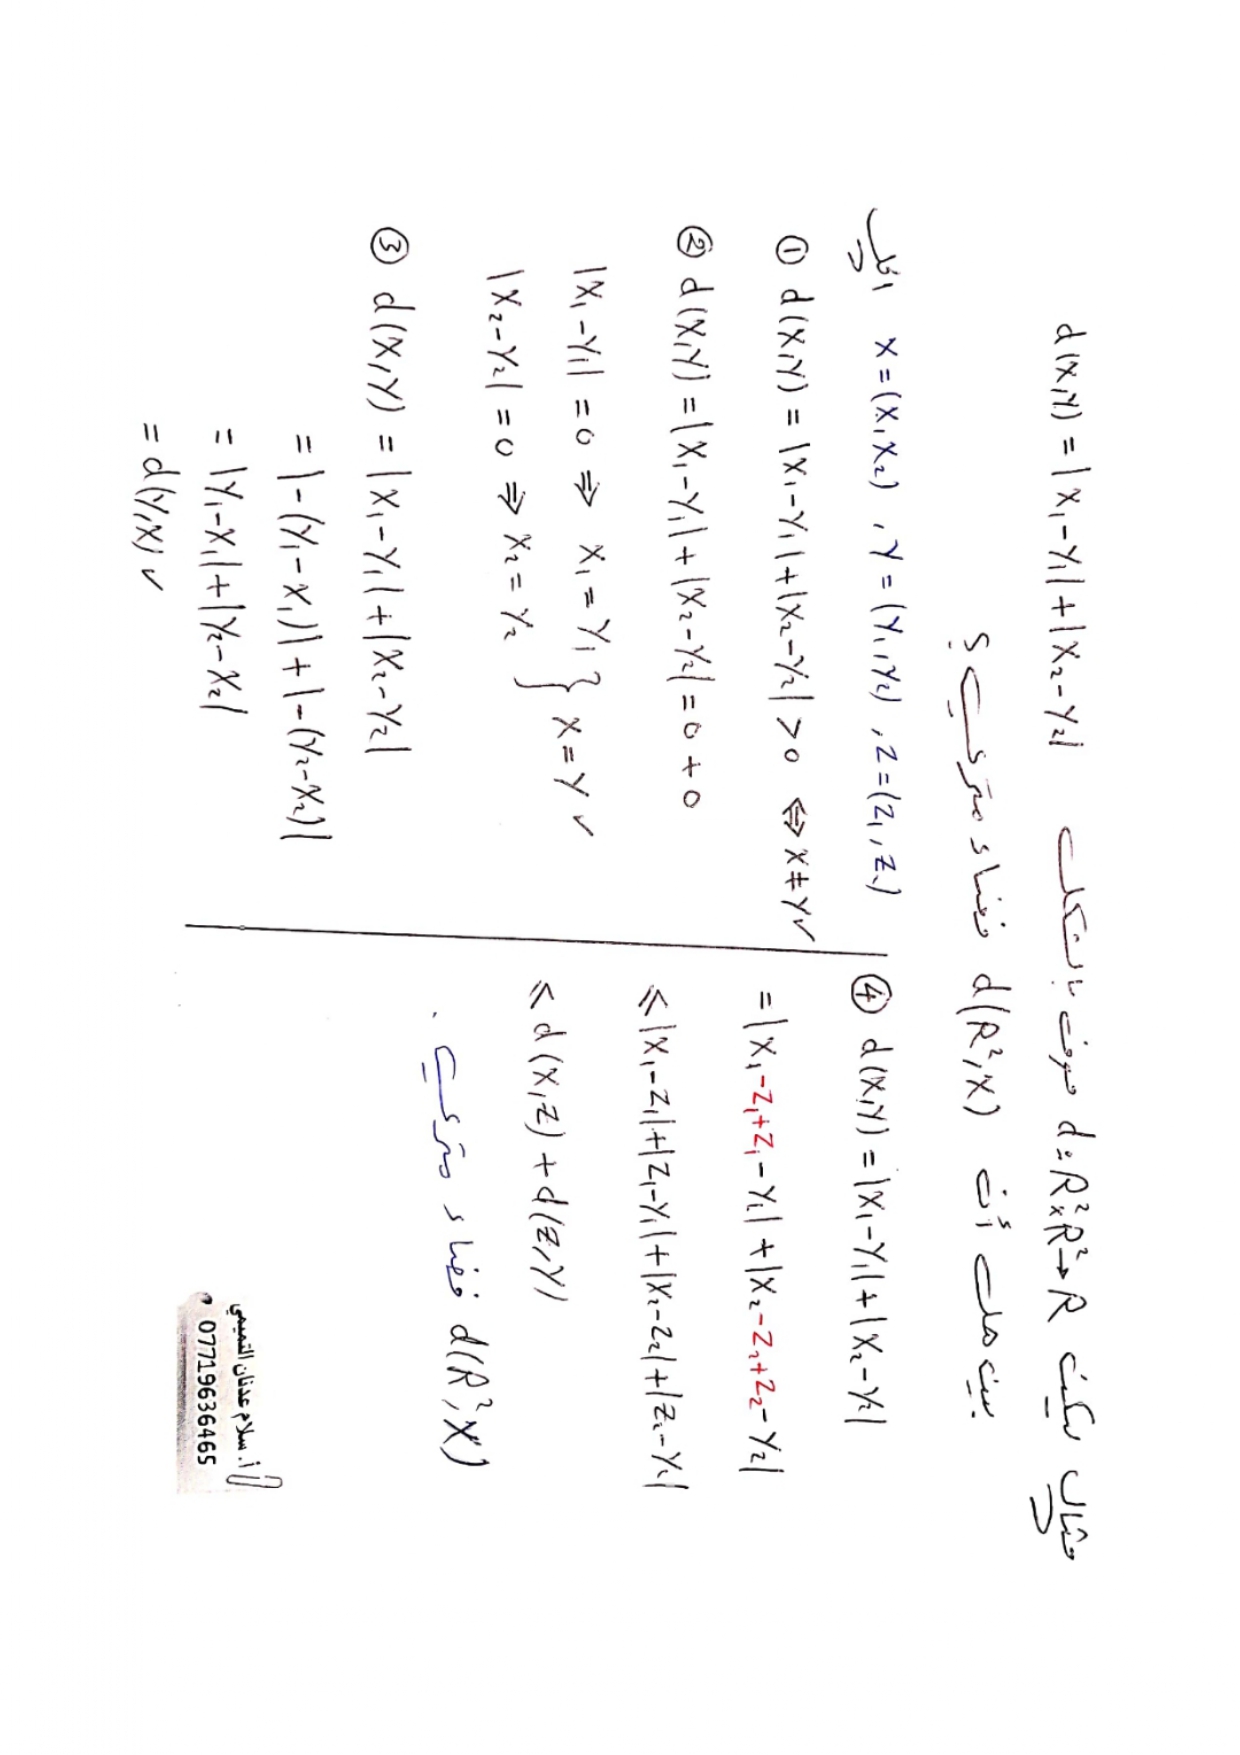 مثال ليكن d: R²×R²→R معرف بالشكل
d(x,y) = |x₁-y₁|+|x₂-y₂|
بين هل أن d(R²,X) فضاء متري؟
الحل x=(x₁x₂) , y=(y₁,y₂) , z=(z₁,z₂)
① d(x,y) = |x₁-y₁|+|x₂-y₂| >0 ⇔ x≠y✓
② d(x,y) = |x₁-y₁|+|x₂-y₂| = 0+0
|x₁-y₁| = 0 ⇒ x₁=y₁ } x=y ✓
|x₂-y₂| = 0 ⇒ x₂=y₂
③ d(x,y) = |x₁-y₁|+|x₂-y₂|
= |-(y₁-x₁)|+|-(y₂-x₂)|
= |y₁-x₁|+|y₂-x₂|
= d(y,x) ✓
④ d(x,y) = |x₁-y₁|+|x₂-y₂|
= |x₁-z₁+z₁-y₁|+|x₂-z₂+z₂-y₂|
≤ |x₁-z₁|+|z₁-y₁|+|x₂-z₂|+|z₂-y₂|
≤ d(x,z)+d(z,y)
d(R²,X) فضاء متري .
أ. سلام عدنان التميمي
07719636465